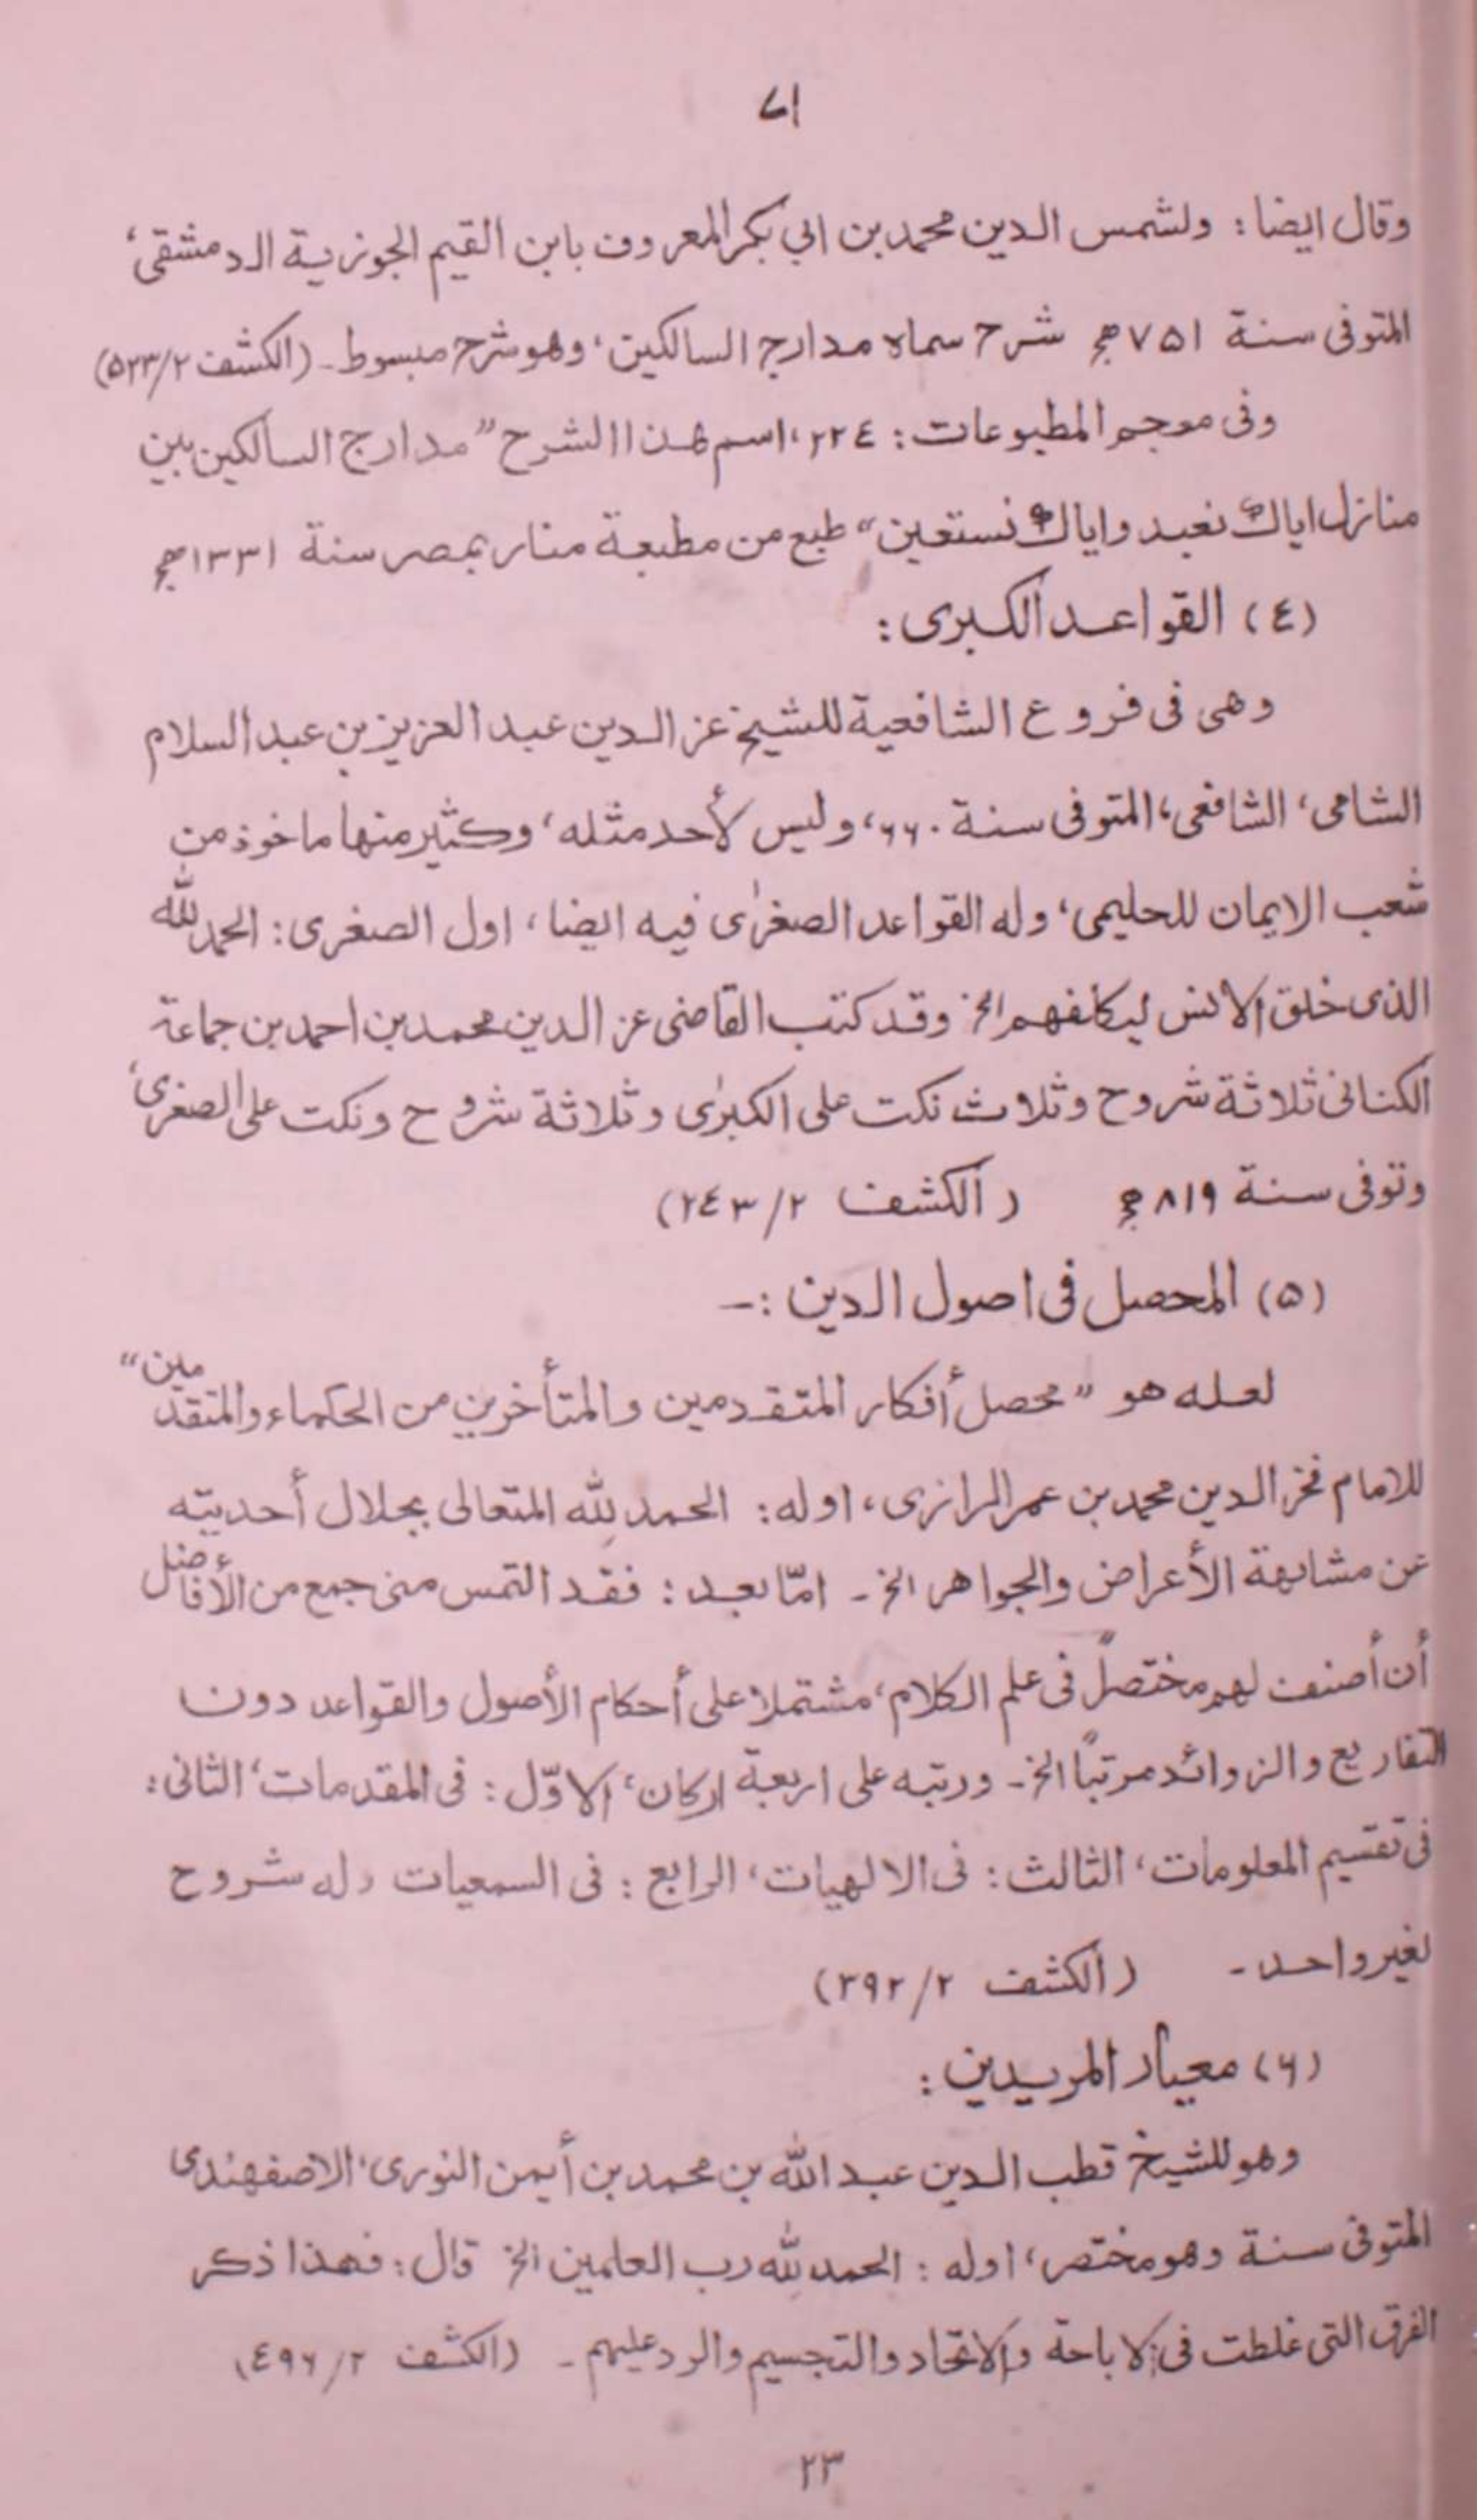 ا۷
وقال ايضا: ولشمس الدين محمد بن ابي بكر المعروف بابن القيم الجوزية الدمشقى،
المتوفى سنة ۷۵۱ھ شرح سماه مدارج السالكين، وهو شرح مبسوط۔ (الكشف ۲/۵۲۳)
وفى معجم المطبوعات: ۲۲٤، اسم هذا الشرح "مدارج السالكين بين
منازل اياك نعبد واياك نستعين" طبع من مطبعة منار بمصر سنة ۱۳۳۱ھ
(٤) القواعد الكبرى:
وهى فى فروع الشافعية للشيخ عز الدين عبد العزيز بن عبد السلام
الشامى، الشافعى، المتوفى سنة ۶۶۰، وليس لأحد مثله، وكثير منها ماخوذ من
شعب الايمان للحليمى، وله القواعد الصغرٰى فيه ايضا، اول الصغرى: الحمد لله
الذى خلق الانس ليكلفهم الخ وقد كتب القاضى عز الدين محمد بن احمد بن جماعة
الكنانى ثلاثة شروح وثلاث نكت على الكبرٰى وثلاثة شروح ونكت على الصغرى،
وتوفى سنة ۸۱۹ھ (الكشف ۲/۲٤۳)
(۵) المحصل فى اصول الدين :-
لعله هو "محصل أفكار المتقدمين والمتأخرين من الحكماء والمتقدمين"
للامام فخر الدين محمد بن عمر الرازى، اوله: الحمد لله المتعالى بجلال أحديته
عن مشابهة الأعراض والجواهر الخ۔ امّا بعد: فقد التمس منى جمع من الأفاضل
أن أصنف لهم مختصراً فى علم الكلام، مشتملا على أحكام الأصول والقواعد دون
التفاريع والزوائد مرتباً الخ۔ ورتبه على اربعة اركان، الاوّل: فى المقدمات، الثانى:
فى تقسيم المعلومات، الثالث: فى الالهيات، الرابع: فى السمعيات وله شروح
لغير واحد۔ (الكشف ۲/۳۹۲)
(۶) معيار المريدين:
وهو للشيخ قطب الدين عبد الله بن محمد بن أيمن النورى، الاصفهندى
المتوفى سنة وهو مختصر، اوله: الحمد لله رب العلمين الخ قال: فهذا ذكر
الفرق التى غلطت فى الاباحة والاتحاد والتجسيم والرد عليهم۔ (الكشف ۲/٤۹۶)
۲۳